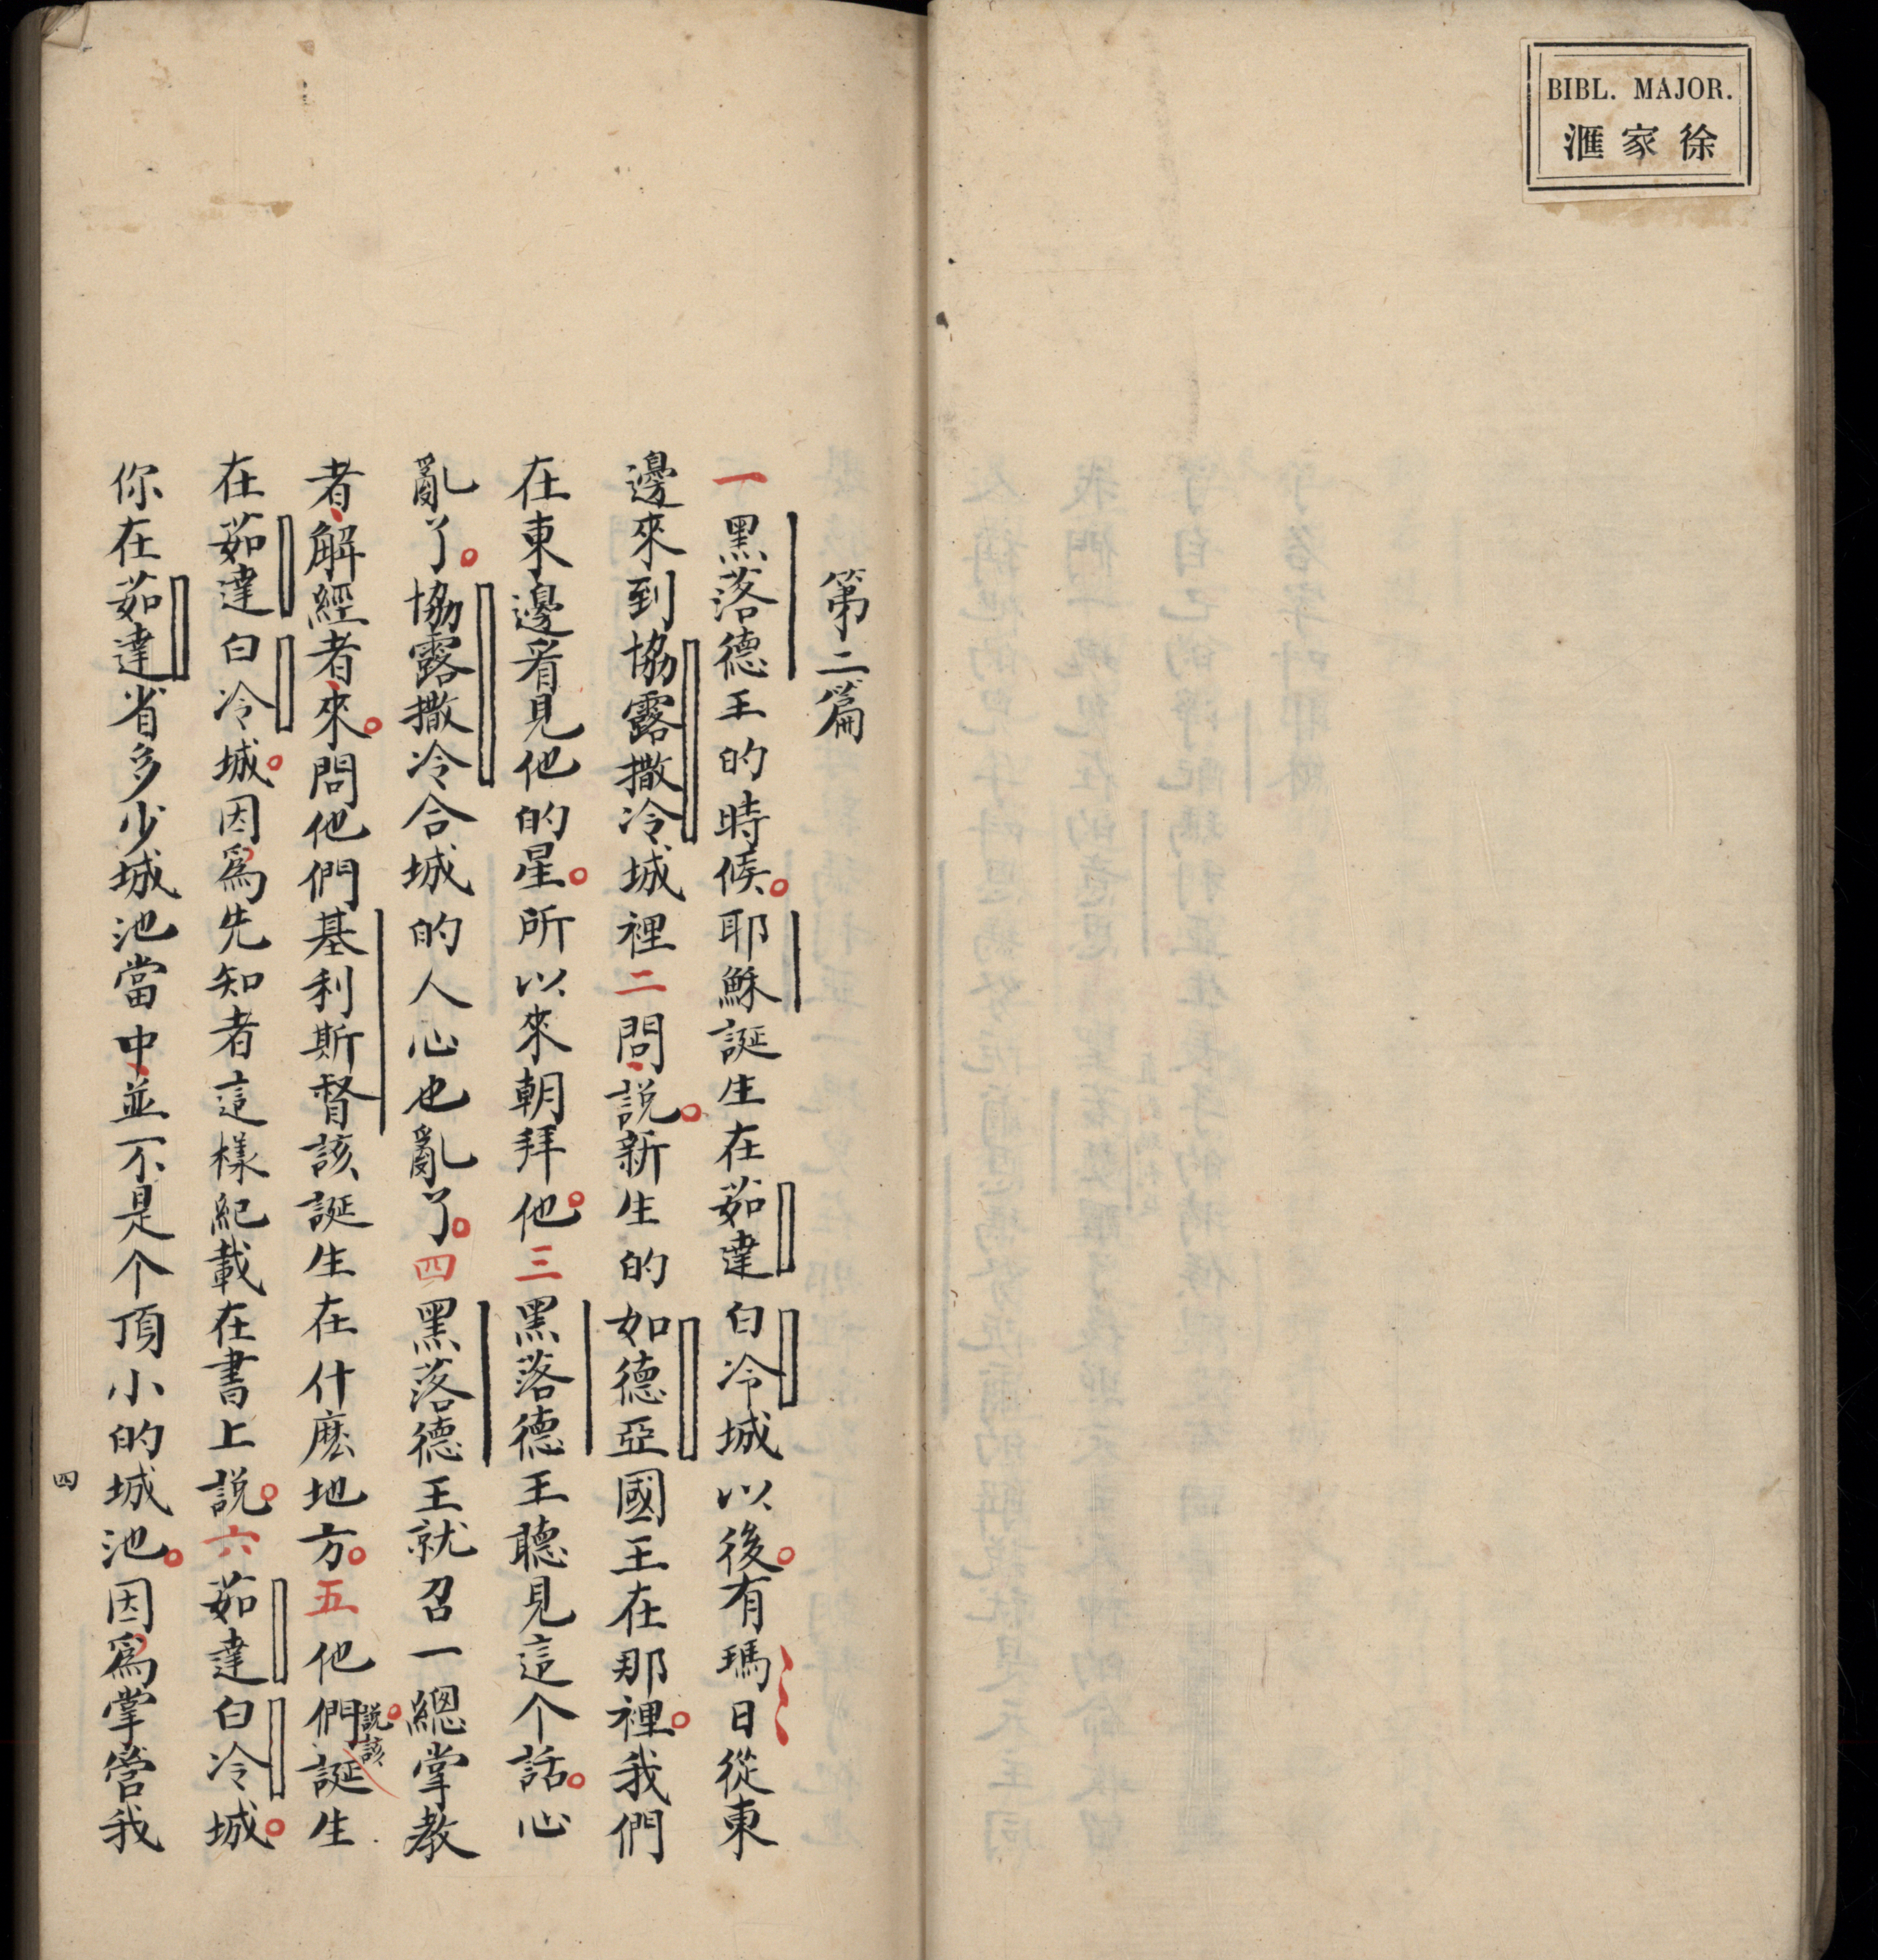 BIBL. MAJOR.
滙家徐
第二篇
一黑落德王的時候。耶穌誕生在茹達白冷城以後。有瑪日從東
邊來到協露撒冷城裡二問、說。新生的如德亞國王在那裡。我們
在東邊看見他的星。所以來朝拜他。三黑落德王聽見這个話。心
亂了。協露撒冷合城的人心也亂了。四黑落德王就召一總掌教
者、解經者、來。問他們基利斯督該誕生在什麽地方。五他們說。該誕生
在茹達白冷城。因爲先知者這樣紀載在書上說。六茹達白冷城。
你在茹達省多少城池當中、並不是个頂小的城池。因爲掌管我
四